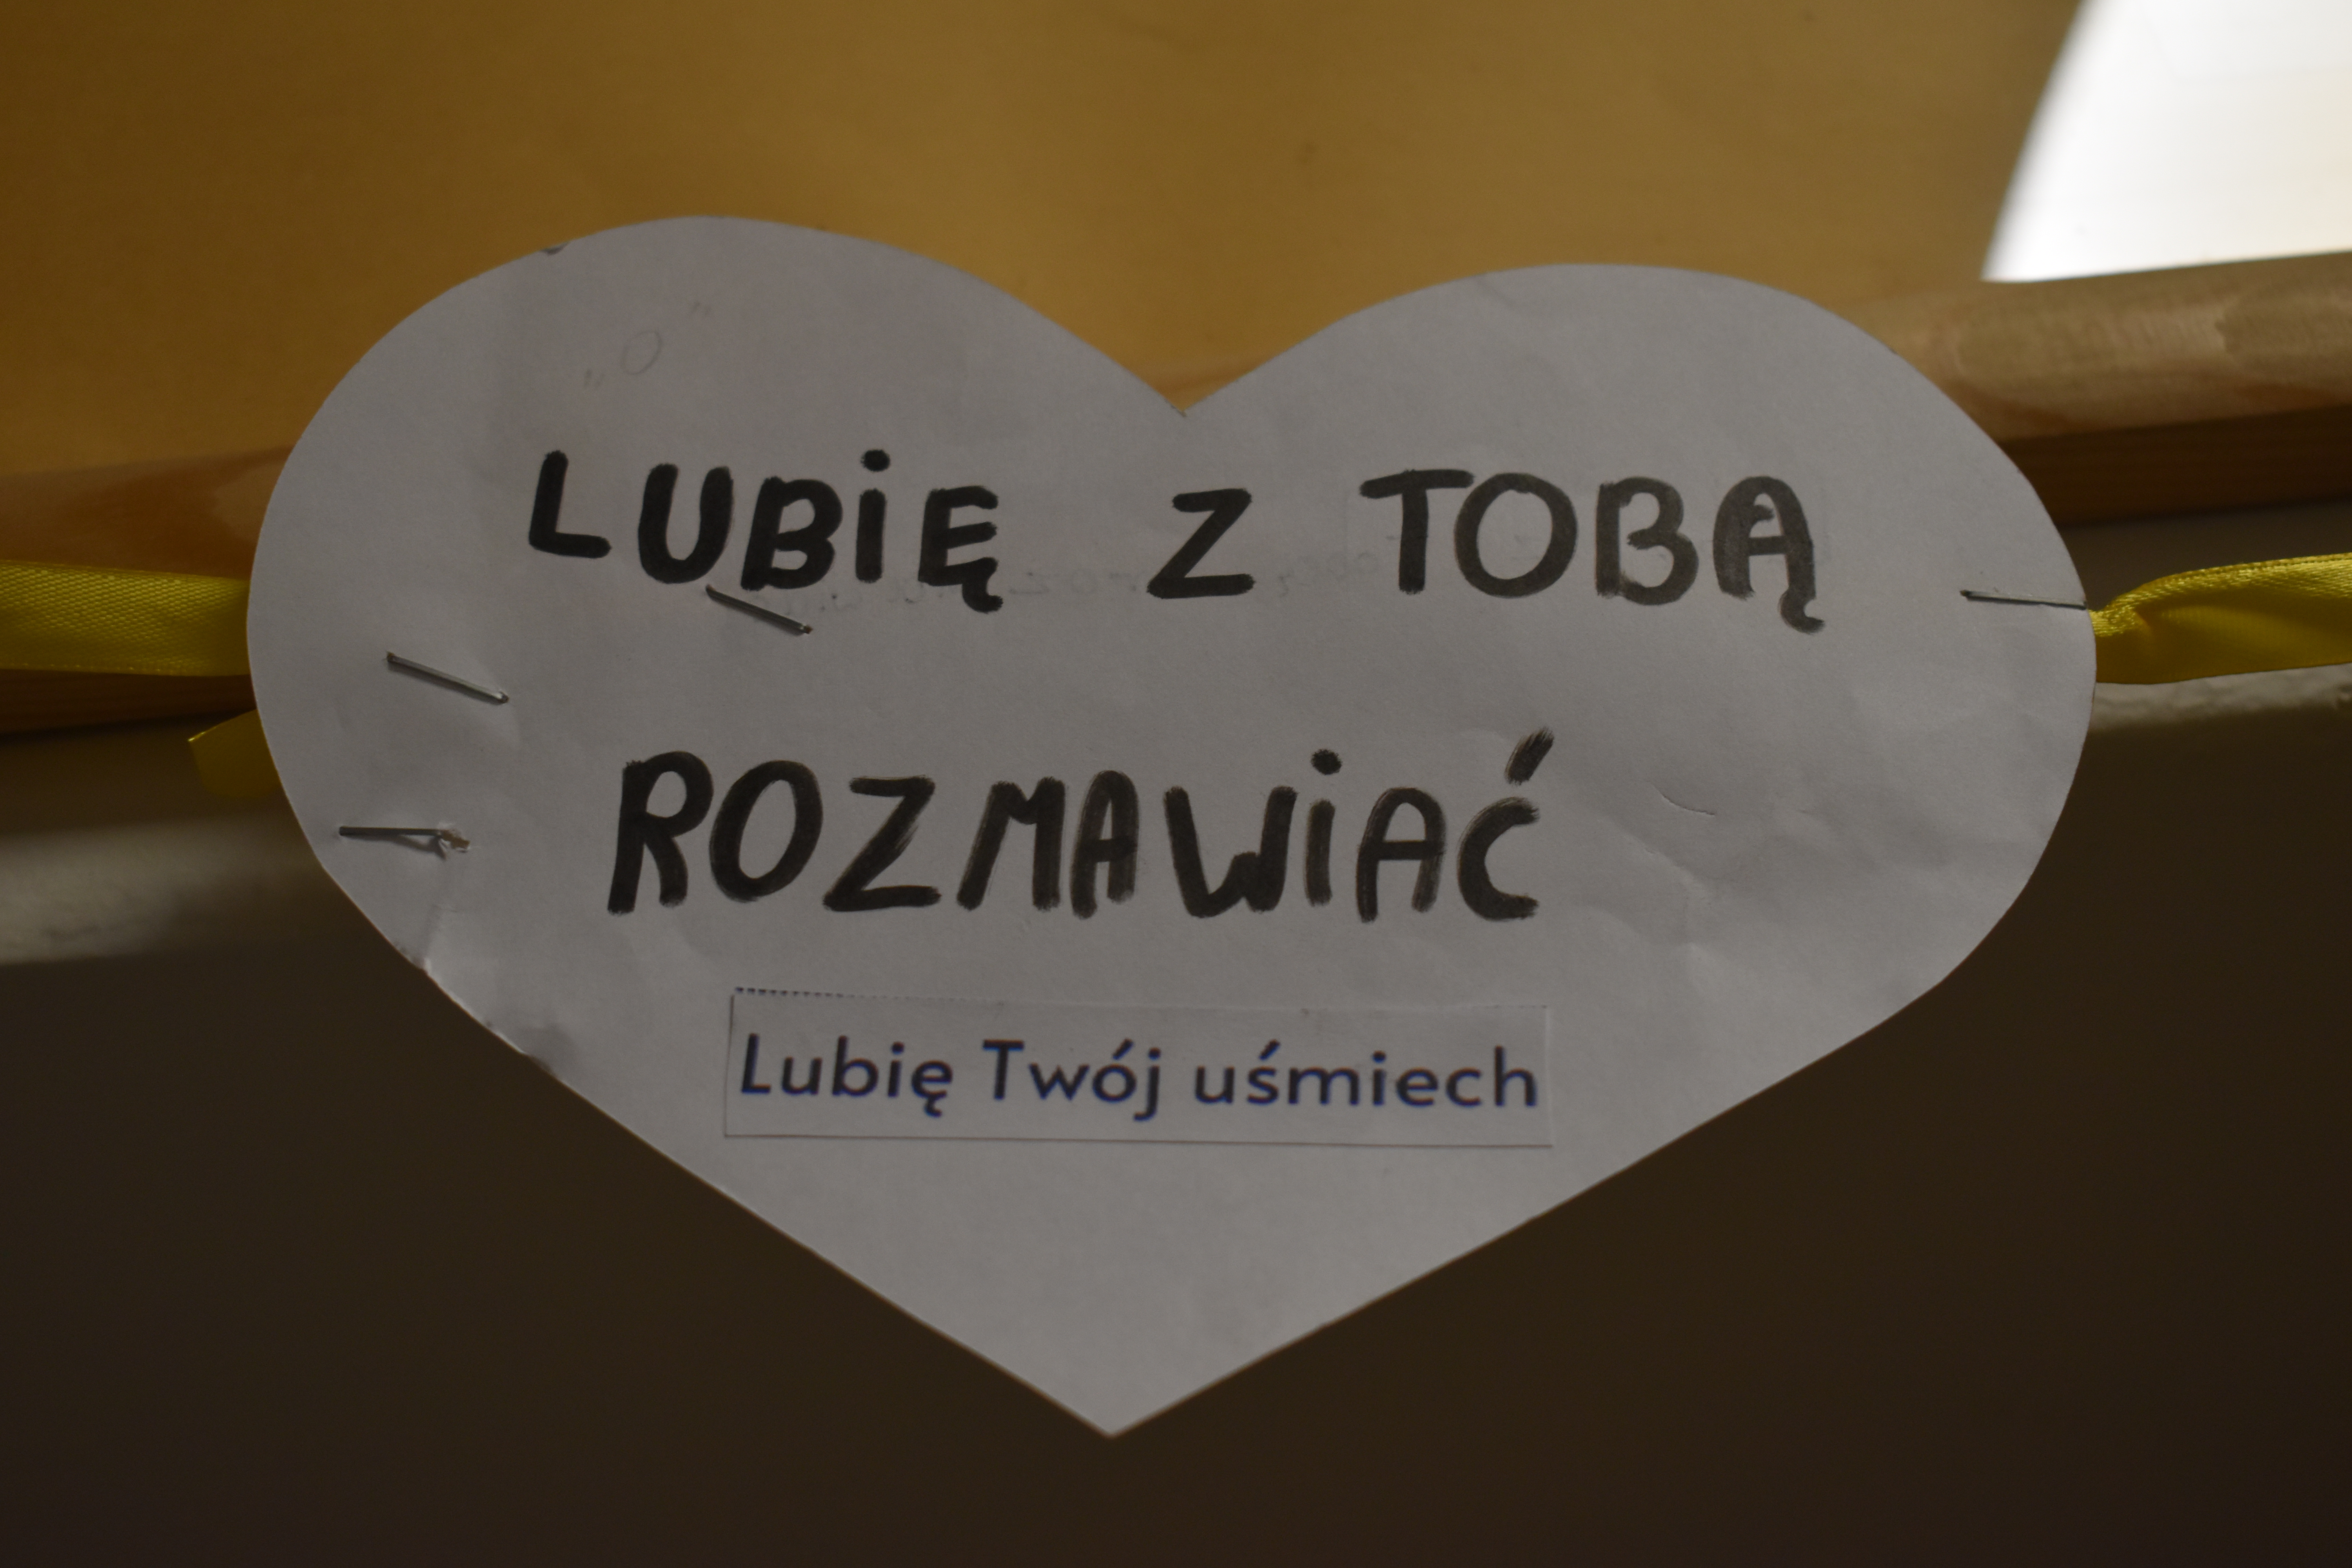 "O"
LUBiĘ Z TOBĄ
ROZMAWiAĆ
Lubię Twój uśmiech